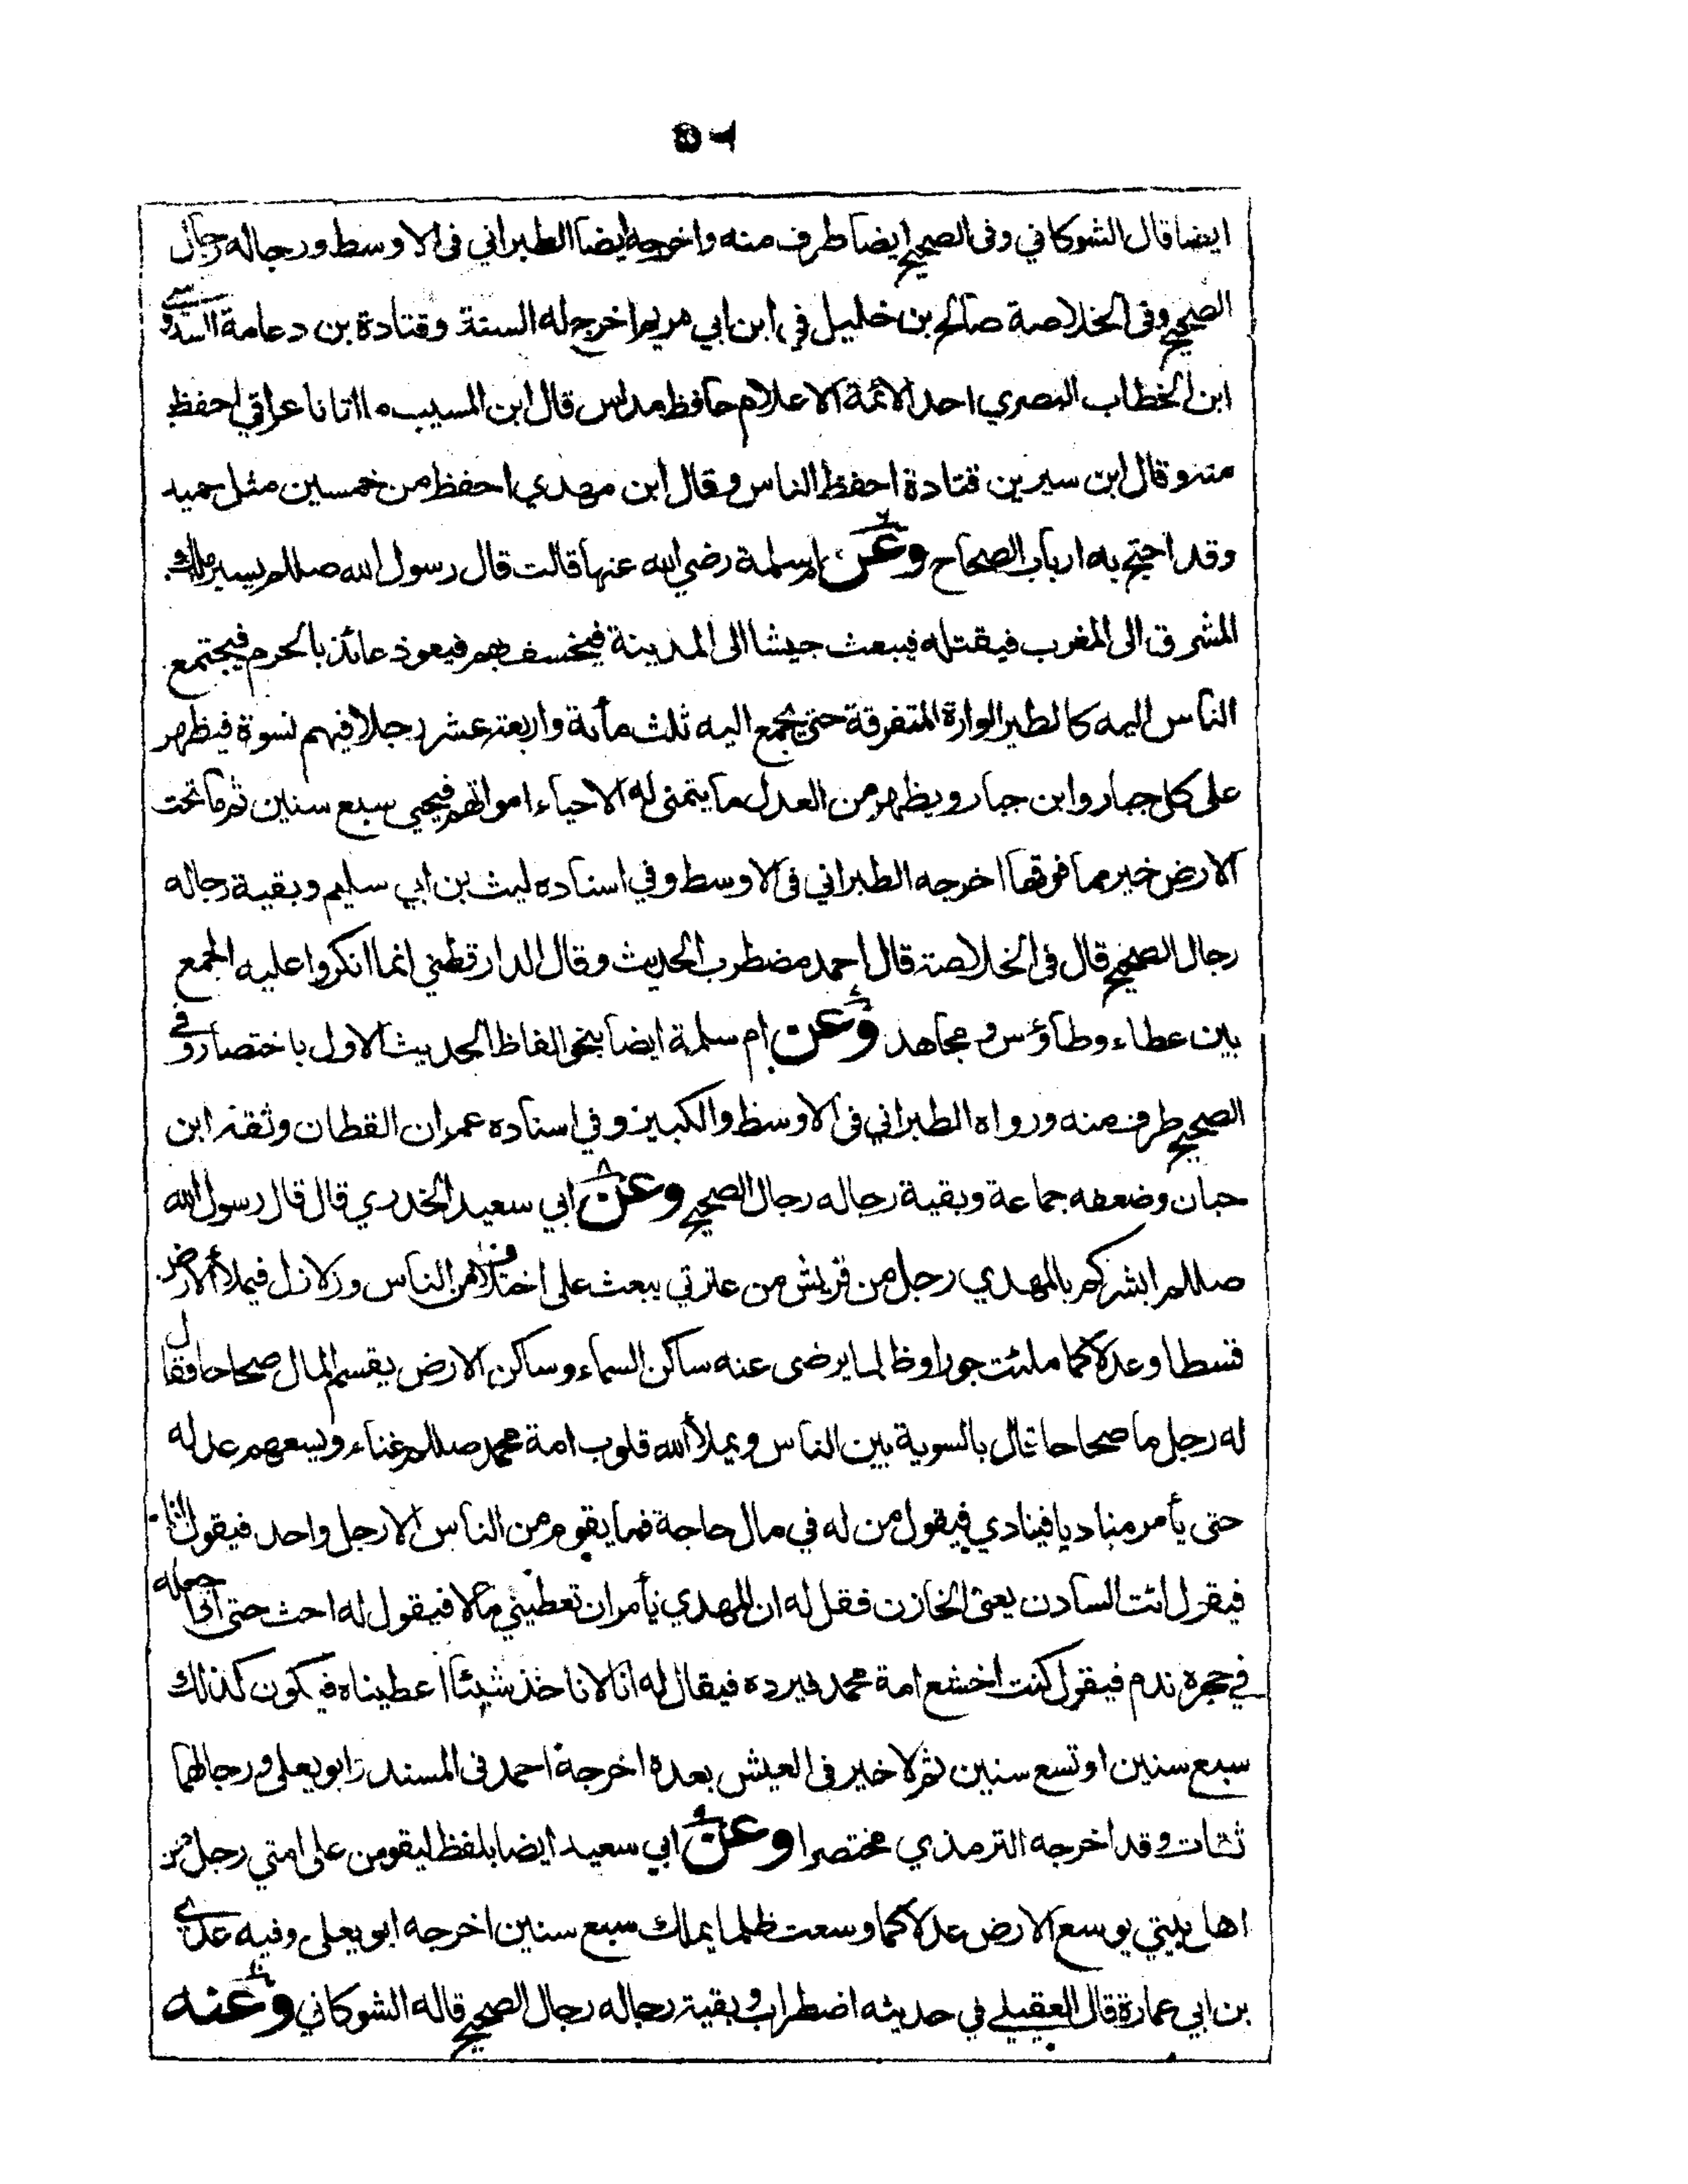 ايضا قال الشوكاني وفى الصحيح ايضا طرف منه واخرجه ايضا الطبراني فى الاوسط ورجاله رجال
الصحيح وفى الخلاصة صالح بن خليل في ابن ابي مريم اخرج له الستة وقتادة بن دعامة السدوسي
ابن الخطاب البصري احد الائمة الاعلام حافظ مدلس قال ابن المسيب ما اتانا عراقي احفظ
منه وقال ابن سيرين قتادة احفظ الناس وقال ابن مهدي احفظ من خمسين مثل حميد
وقد احتج به ارباب الصحاح وعن ام سلمة رضي الله عنها قالت قال رسول الله صللم يسير ملك
المشرق الى المغرب فيقتله فيبعث جيشا الى المدينة فيخسف بهم فيعوذ عائذ بالحرم فيجتمع
الناس اليه كالطير الوارة المتفرقة حتى يجمع اليه ثلث مأئة واربعة عشر رجلا فيهم نسوة فيظهر
على كل جبار وابن جبار ويظهر من العدل ما يتمنى له الاحياء امواتهم فيحيى سبع سنين ثم ما تحت
الارض خير مما فوقها اخرجه الطبراني فى الاوسط وفي اسناده ليث بن ابي سليم وبقية رجاله
رجال الصحيح قال فى الخلاصة قال احمد مضطرب الحديث وقال الدارقطني انما انكروا عليه الجمع
بين عطاء وطاؤس ومجاهد وعن ام سلمة ايضا بنحو الفاظ الحديث الاول باختصار وفي
الصحيح طرف منه ورواه الطبراني فى الاوسط والكبير وفي اسناده عمران القطان وثقه ابن
حبان وضعفه جماعة وبقية رجاله رجال الصحيح وعن ابي سعيد الخدري قال قال رسول الله
صللم ابشركم بالمهدي رجل من قريش من عترتي يبعث على اختلاف من الناس وزلازل فيملأ الارض
قسطا وعدلا كما ملئت جورا وظلما يرضى عنه ساكن السماء وساكن الارض يقسم المال صحاحا فقال
له رجل ما صحاحا قال بالسوية بين الناس ويملأ الله قلوب امة محمد صللم غناء ويسعهم عدله
حتى يأمر مناديا فينادي فيقول من له في مال حاجة فما يقوم من الناس الا رجل واحد فيقول انا
فيقول ائت السادن يعنى الخازن فقل له ان المهدي يأمر ان تعطيني مالا فيقول له احث حتى اذا جعله
في حجره ندم فيقول كنت اخشع امة محمد فيرده فيقال له انا لا ناخذ شيئا اعطيناه فيكون كذلك
سبع سنين او تسع سنين ثم لا خير فى العيش بعده اخرجه احمد فى المسند وابو يعلى ورجالهما
ثقات وقد اخرجه الترمذي مختصرا وعن ابي سعيد ايضا بلفظ ليقومن على امتي رجل من
اهل بيتي يوسع الارض عدلا كما وسعت ظلما يملك سبع سنين اخرجه ابو يعلى وفيه عدي
بن ابي عمارة قال العقيلي في حديثه اضطراب وبقية رجاله رجال الصحيح قاله الشوكاني وعنه